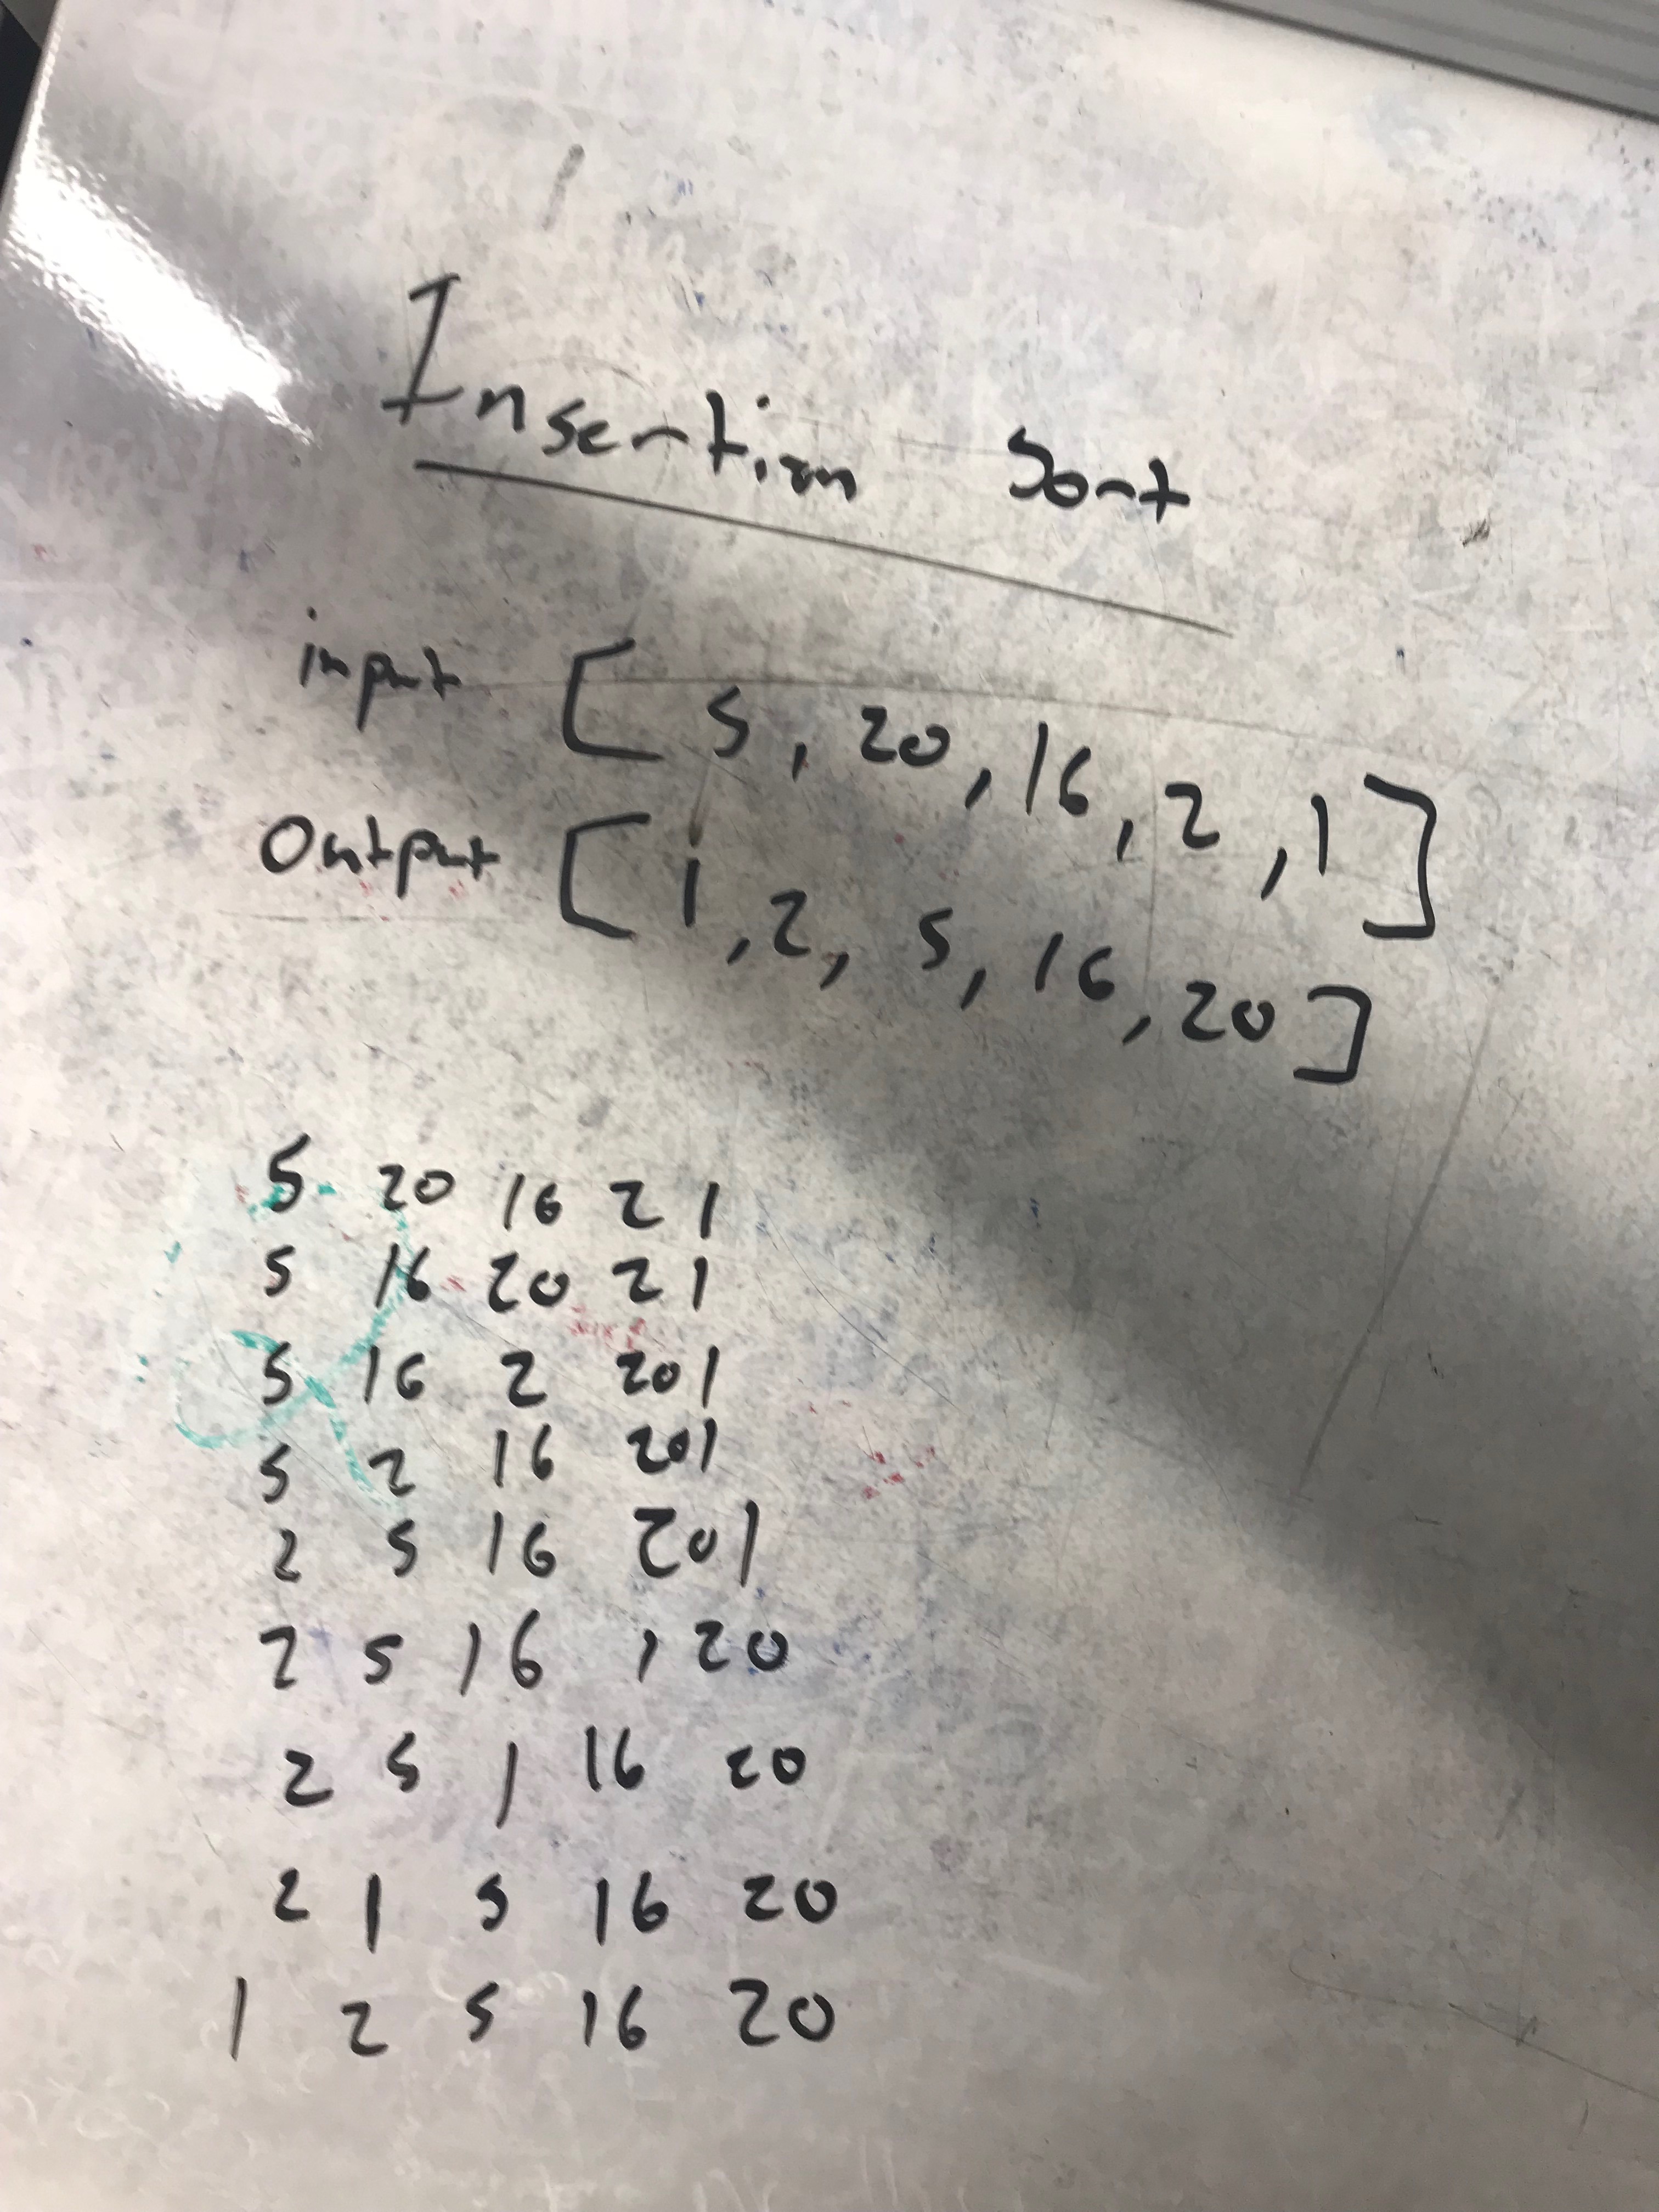 Insertion Sort
input [5, 20, 16, 2, 1]
Output [1, 2, 5, 16, 20]
5 20 16 2 1
5 16 20 2 1
5 16 2 20 1
5 2 16 20 1
2 5 16 20 1
2 5 16 1 20
2 5 1 16 20
2 1 5 16 20
1 2 5 16 20